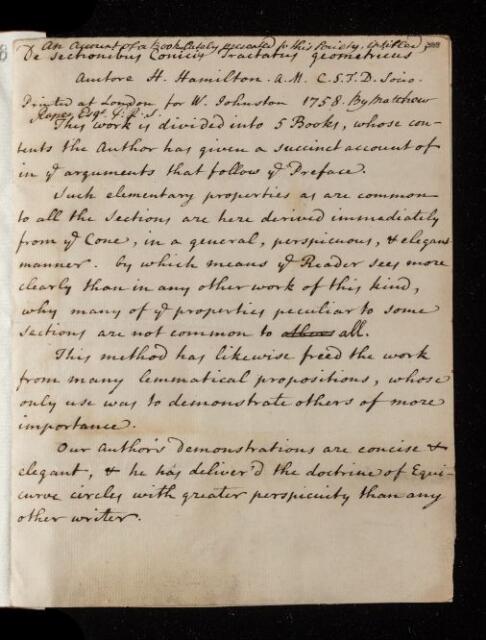 An Account of a Book lately presented to this Society, entitled
De Sectionibus Conicis Tractatus geometricus
Autore H. Hamilton. A.M. C.S.T.D. Socio.
Printed at London for W. Johnston 1758. By Matthew
Raper Esqr. F.R.S.
This work is divided into 5 Books, whose con-
tents the Author has given a succinct account of
in ye arguments that follow ye Preface.
Such elementary properties as are common
to all the sections are here derived immediately
from ye Cone, in a general, perspicuous, & elegant
manner. by which means ye Reader sees more
clearly than in any other work of this kind,
why many of ye properties peculiar to some
sections are not common to all.
This method has likewise freed the work
from many lemmatical propositions, whose
only use was to demonstrate others of more
importance.
Our Author's Demonstrations are concise &
elegant, & he has deliver'd the doctrine of Equi-
curve circles with greater perspicuity than any
other writer.